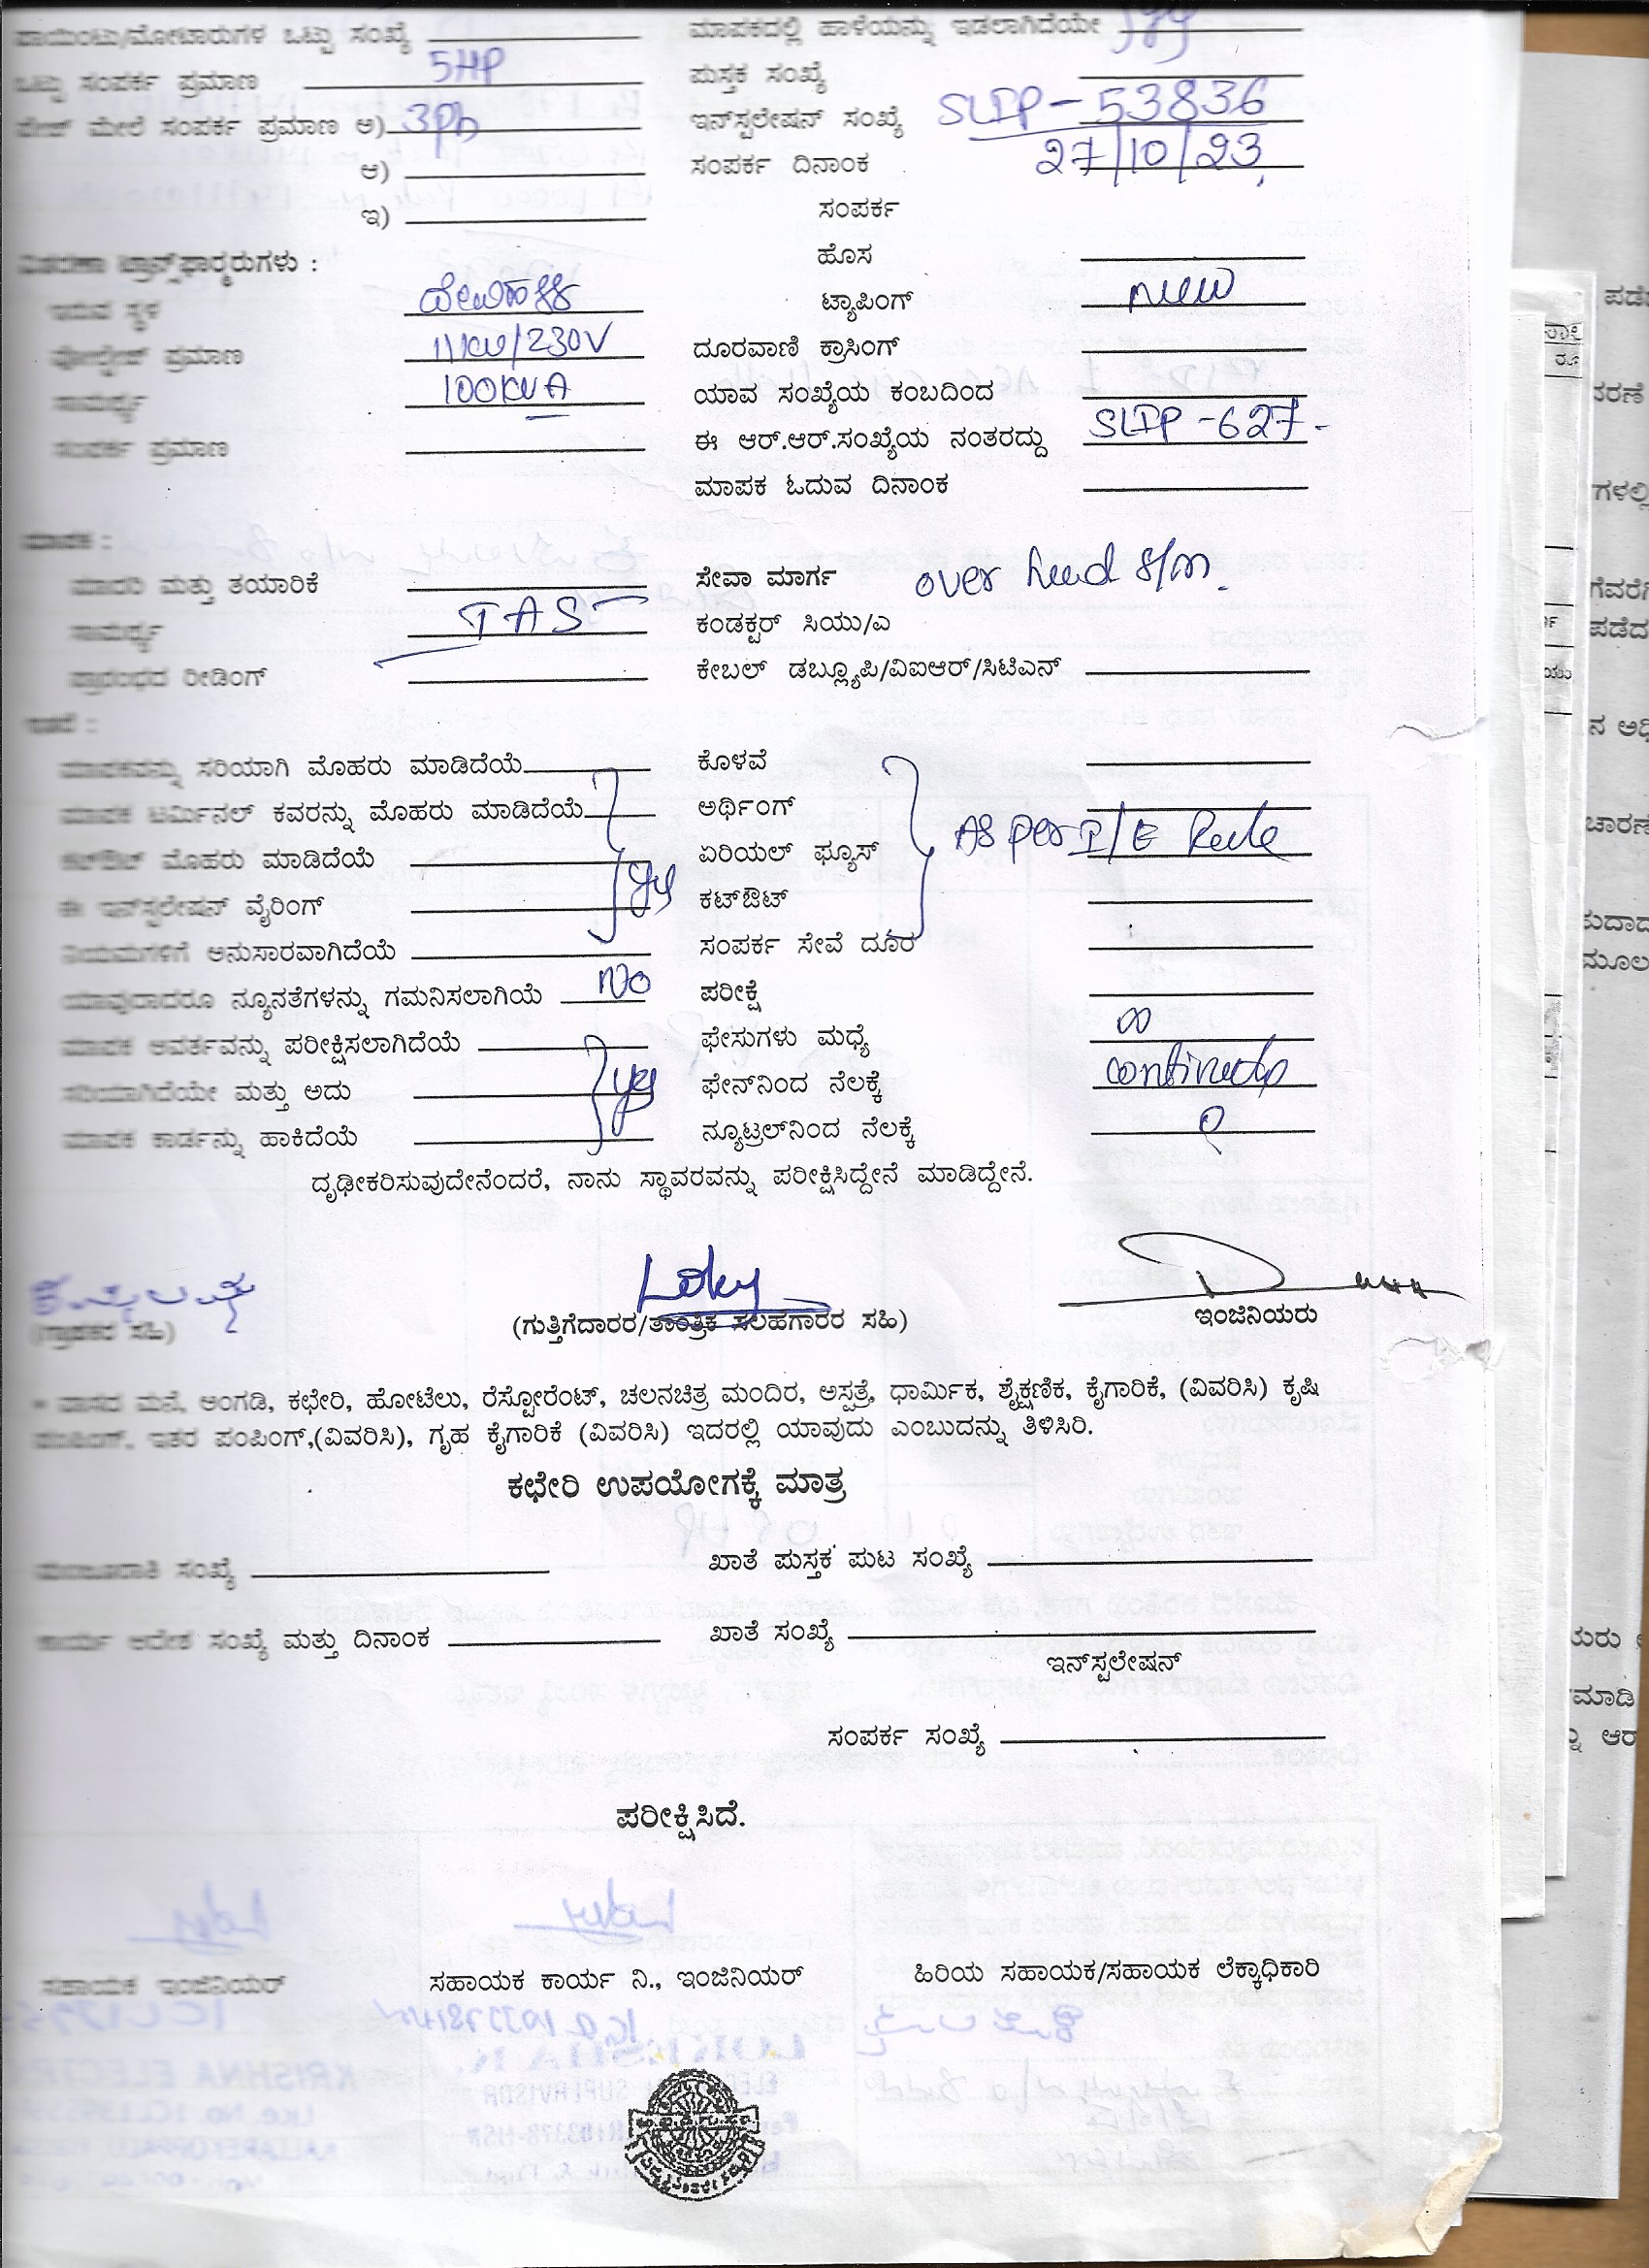 ಪಾಯಿಂಟು/ಮೋಟಾರುಗಳ ಒಟ್ಟು ಸಂಖ್ಯೆ
ಮಾಪಕದಲ್ಲಿ ಹಾಳೆಯನ್ನು ಇಡಲಾಗಿದೆಯೇ
ಒಟ್ಟು ಸಂಪರ್ಕ ಪ್ರಮಾಣ 5HP
ಪುಸ್ತಕ ಸಂಖ್ಯೆ
ಮೇಲೆ ಸಂಪರ್ಕ ಪ್ರಮಾಣ ಅ) 3Ph
ಇನ್‌ಸ್ಟಲೇಷನ್ ಸಂಖ್ಯೆ SLIP-53836
ಆ)
ಸಂಪರ್ಕ ದಿನಾಂಕ 27/10/23
ಇ)
ಸಂಪರ್ಕ
ಹೊಸ
ವಿತರಣಾ ಟ್ರಾನ್ಸ್‌ಫಾರ್ಮರುಗಳು :
ಇರುವ ಸ್ಥಳ
ಟ್ಯಾಪಿಂಗ್ new
ವೋಲ್ಟೇಜ್ ಪ್ರಮಾಣ 11KV/230V
ದೂರವಾಣಿ ಕ್ರಾಸಿಂಗ್
ಸಾಮರ್ಥ್ಯ 100KVA
ಯಾವ ಸಂಖ್ಯೆಯ ಕಂಬದಿಂದ
ಸಂಪರ್ಕ ಪ್ರಮಾಣ
ಈ ಆರ್.ಆರ್.ಸಂಖ್ಯೆಯ ನಂತರದ್ದು SLIP-627-
ಮಾಪಕ ಓದುವ ದಿನಾಂಕ
ಮಾಪಕ :
ಮಾದರಿ ಮತ್ತು ತಯಾರಿಕೆ
ಸೇವಾ ಮಾರ್ಗ over head S/m.
ಸಾಮರ್ಥ್ಯ
ಕಂಡಕ್ಟರ್ ಸಿಯು/ಎ
ಪ್ರಾರಂಭದ ರೀಡಿಂಗ್
ಕೇಬಲ್ ಡಬ್ಲ್ಯೂಪಿ/ವಿಐಆರ್/ಸಿಟಿಎನ್
ಮಾಪಕವನ್ನು ಸರಿಯಾಗಿ ಮೊಹರು ಮಾಡಿದೆಯೆ
ಕೊಳವೆ
ಮಾಪಕ ಟರ್ಮಿನಲ್ ಕವರನ್ನು ಮೊಹರು ಮಾಡಿದೆಯೆ
ಅರ್ಥಿಂಗ್
As per I/E Rule
ಕಟ್‌ಔಟ್ ಮೊಹರು ಮಾಡಿದೆಯೆ
ಏರಿಯಲ್ ಫ್ಯೂಸ್
yes
ಈ ಇನ್‌ಸ್ಟಲೇಷನ್ ವೈರಿಂಗ್
ಕಟ್‌ಔಟ್
ನಿಯಮಗಳಿಗೆ ಅನುಸಾರವಾಗಿದೆಯೆ
ಸಂಪರ್ಕ ಸೇವೆ ದೂರ
ಯಾವುದಾದರೂ ನ್ಯೂನತೆಗಳನ್ನು ಗಮನಿಸಲಾಗಿಯೆ No
ಪರೀಕ್ಷೆ
ಮಾಪಕ ಆವರ್ತವನ್ನು ಪರೀಕ್ಷಿಸಲಾಗಿದೆಯೆ
ಫೇಸುಗಳು ಮಧ್ಯೆ ∞
ಸರಿಯಾಗಿದೆಯೇ ಮತ್ತು ಅದು yes
ಫೇನ್‌ನಿಂದ ನೆಲಕ್ಕೆ
ಮಾಪಕ ಕಾರ್ಡನ್ನು ಹಾಕಿದೆಯೆ
ನ್ಯೂಟ್ರಲ್‌ನಿಂದ ನೆಲಕ್ಕೆ 0
ದೃಢೀಕರಿಸುವುದೇನೆಂದರೆ, ನಾನು ಸ್ಥಾವರವನ್ನು ಪರೀಕ್ಷಿಸಿದ್ದೇನೆ ಮಾಡಿದ್ದೇನೆ.
Loky
(ಗ್ರಾಹಕರ ಸಹಿ)
(ಗುತ್ತಿಗೆದಾರರ/ತಾಂತ್ರಿಕ ಸಲಹಗಾರರ ಸಹಿ)
ಇಂಜಿನಿಯರು
* ವಾಸದ ಮನೆ, ಅಂಗಡಿ, ಕಛೇರಿ, ಹೋಟೆಲು, ರೆಸ್ಟೋರೆಂಟ್, ಚಲನಚಿತ್ರ ಮಂದಿರ, ಅಸ್ಪತ್ರೆ, ಧಾರ್ಮಿಕ, ಶೈಕ್ಷಣಿಕ, ಕೈಗಾರಿಕೆ, (ವಿವರಿಸಿ) ಕೃಷಿ
ಪಂಪಿಂಗ್, ಇತರ ಪಂಪಿಂಗ್,(ವಿವರಿಸಿ), ಗೃಹ ಕೈಗಾರಿಕೆ (ವಿವರಿಸಿ) ಇದರಲ್ಲಿ ಯಾವುದು ಎಂಬುದನ್ನು ತಿಳಿಸಿರಿ.
ಕಛೇರಿ ಉಪಯೋಗಕ್ಕೆ ಮಾತ್ರ
ಮಂಜೂರಾತಿ ಸಂಖ್ಯೆ
ಖಾತೆ ಪುಸ್ತಕ ಪುಟ ಸಂಖ್ಯೆ
ಕಾರ್ಯ ಆದೇಶ ಸಂಖ್ಯೆ ಮತ್ತು ದಿನಾಂಕ
ಖಾತೆ ಸಂಖ್ಯೆ
ಇನ್‌ಸ್ಟಲೇಷನ್
ಸಂಪರ್ಕ ಸಂಖ್ಯೆ
ಪರೀಕ್ಷಿಸಿದೆ.
ಸಹಾಯಕ ಇಂಜಿನಿಯರ್
ಸಹಾಯಕ ಕಾರ್ಯ ನಿ., ಇಂಜಿನಿಯರ್
ಹಿರಿಯ ಸಹಾಯಕ/ಸಹಾಯಕ ಲೆಕ್ಕಾಧಿಕಾರಿ